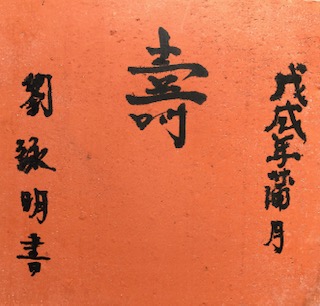 戊戌年蒲月
壽
劉詠明書